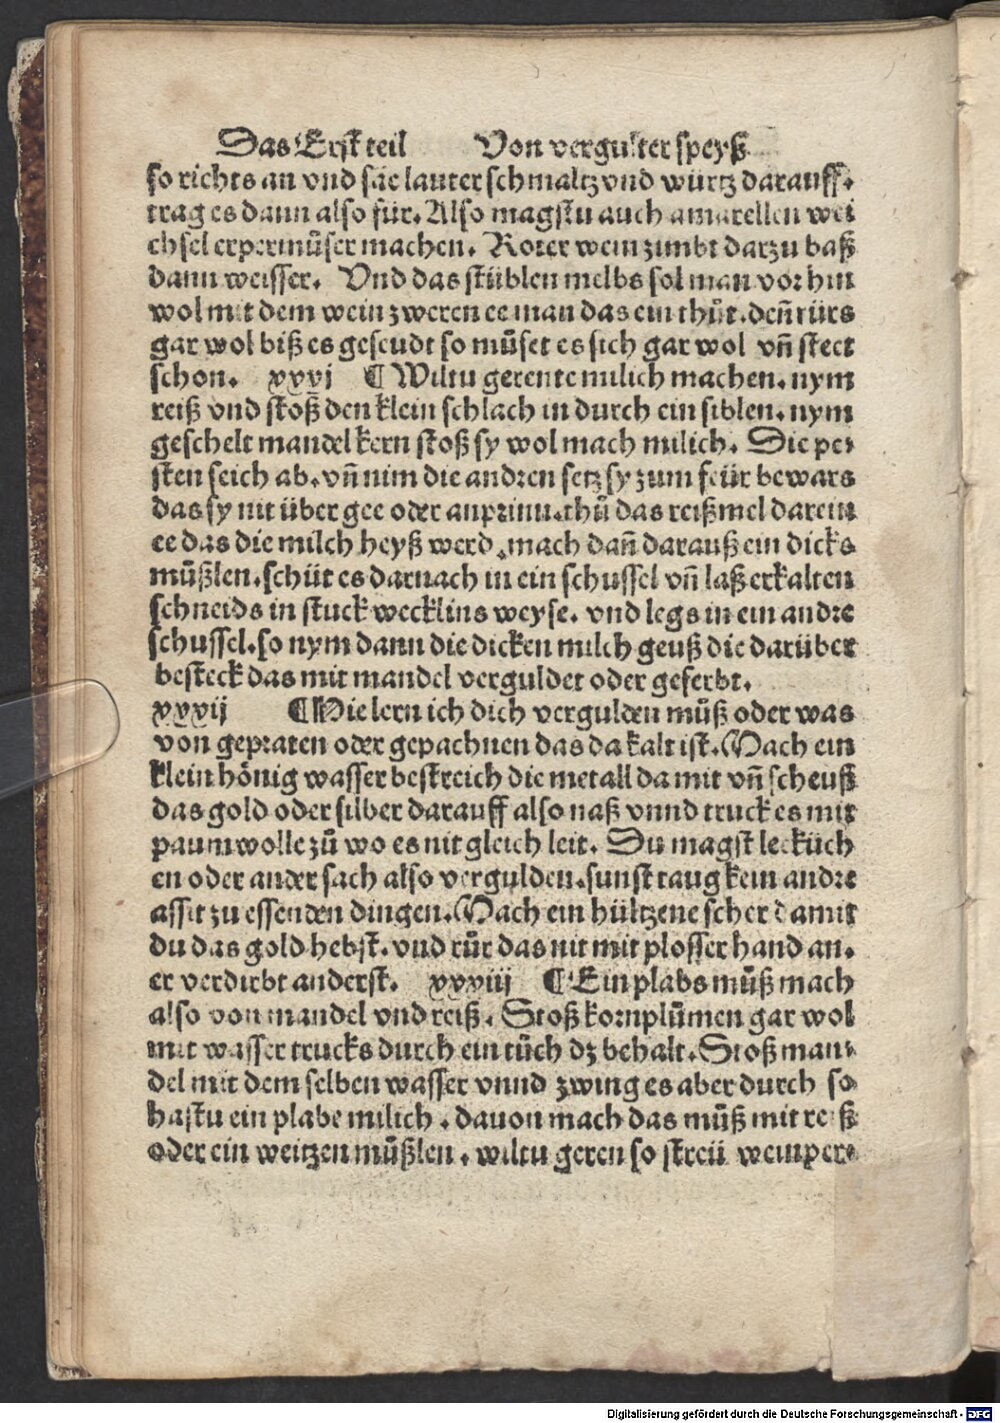 Das Erst teil Von vergulter speyß
so richts an vnd säe lauter schmaltz vnd würtz darauff.
trag es dann also für. Also magstu auch amarellen wei
chsel erpermůser machen. Roter wein zimbt darzu baß
dann weisser. Vnd das stüblen melbs sol man vorhin
wol mit dem wein zweren ee man das ein thůt. deñ rürs
gar wol biß es geseudt so můset es sich gar wol vñ steet
schon. xxxvj ¶ Wiltu gerente milich machen. nym
reiß vnd stoß den klein schlach in durch ein siblen. nym
geschelt mandel kern stoß sy wol mach milich. Die pe-
sten seich ab. vñ nim die andren setz sy zum feür bewars
das sy nit über gee oder anprinn. thů das reißmel darein
ee das die milch heyß werd. mach dañ darauß ein dicks
můßlen. schüt es darnach in ein schussel vñ laß erkalten
schneids in stuck wecklins weyse. vnd legs in ein andre
schussel. so nym dann die dicken milch geuß die darüber
besteck das mit mandel verguldet oder geferbt.
xxxvij ¶ Hie lern ich dich vergulden můß oder was
von gepraten oder gepachnen das da kalt ist. Mach ein
klein hönig wasser bestreich die metall da mit vñ scheuß
das gold oder silber darauff also naß vnnd truck es mit
paumwolle zů wo es nit gleich leit. Du magst leckůch
en oder ander sach also vergulden. sunst taug kein andre
assit zu essenden dingen. Mach ein hültzene scher damit
du das gold hebst. vnd rür das nit mit plosser hand an.
er verdirbt anderst. xxxviij ¶ Ein plabs můß mach
also von mandel vnd reiß. Stoß kornplůmen gar wol
mit wasser trucks durch ein tůch dz behalt. Stoß man-
del mit dem selben wasser vnnd zwing es aber durch so
hastu ein plabe milich. dauon mach das můß mit reiß
oder ein weitzen můßlen. wiltu geren so streü weinper-
Digitalisierung gefördert durch die Deutsche Forschungsgemeinschaft - DFG